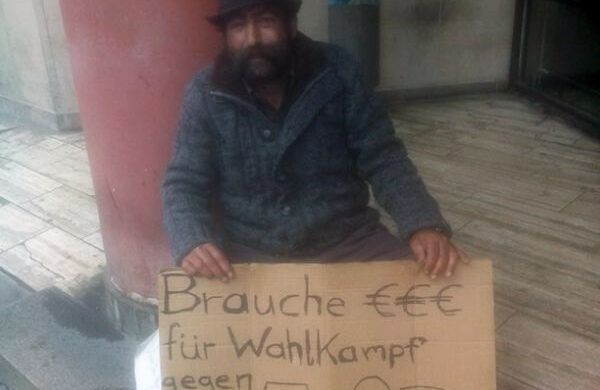 Brauche €€€
für Wahlkampf
gegen